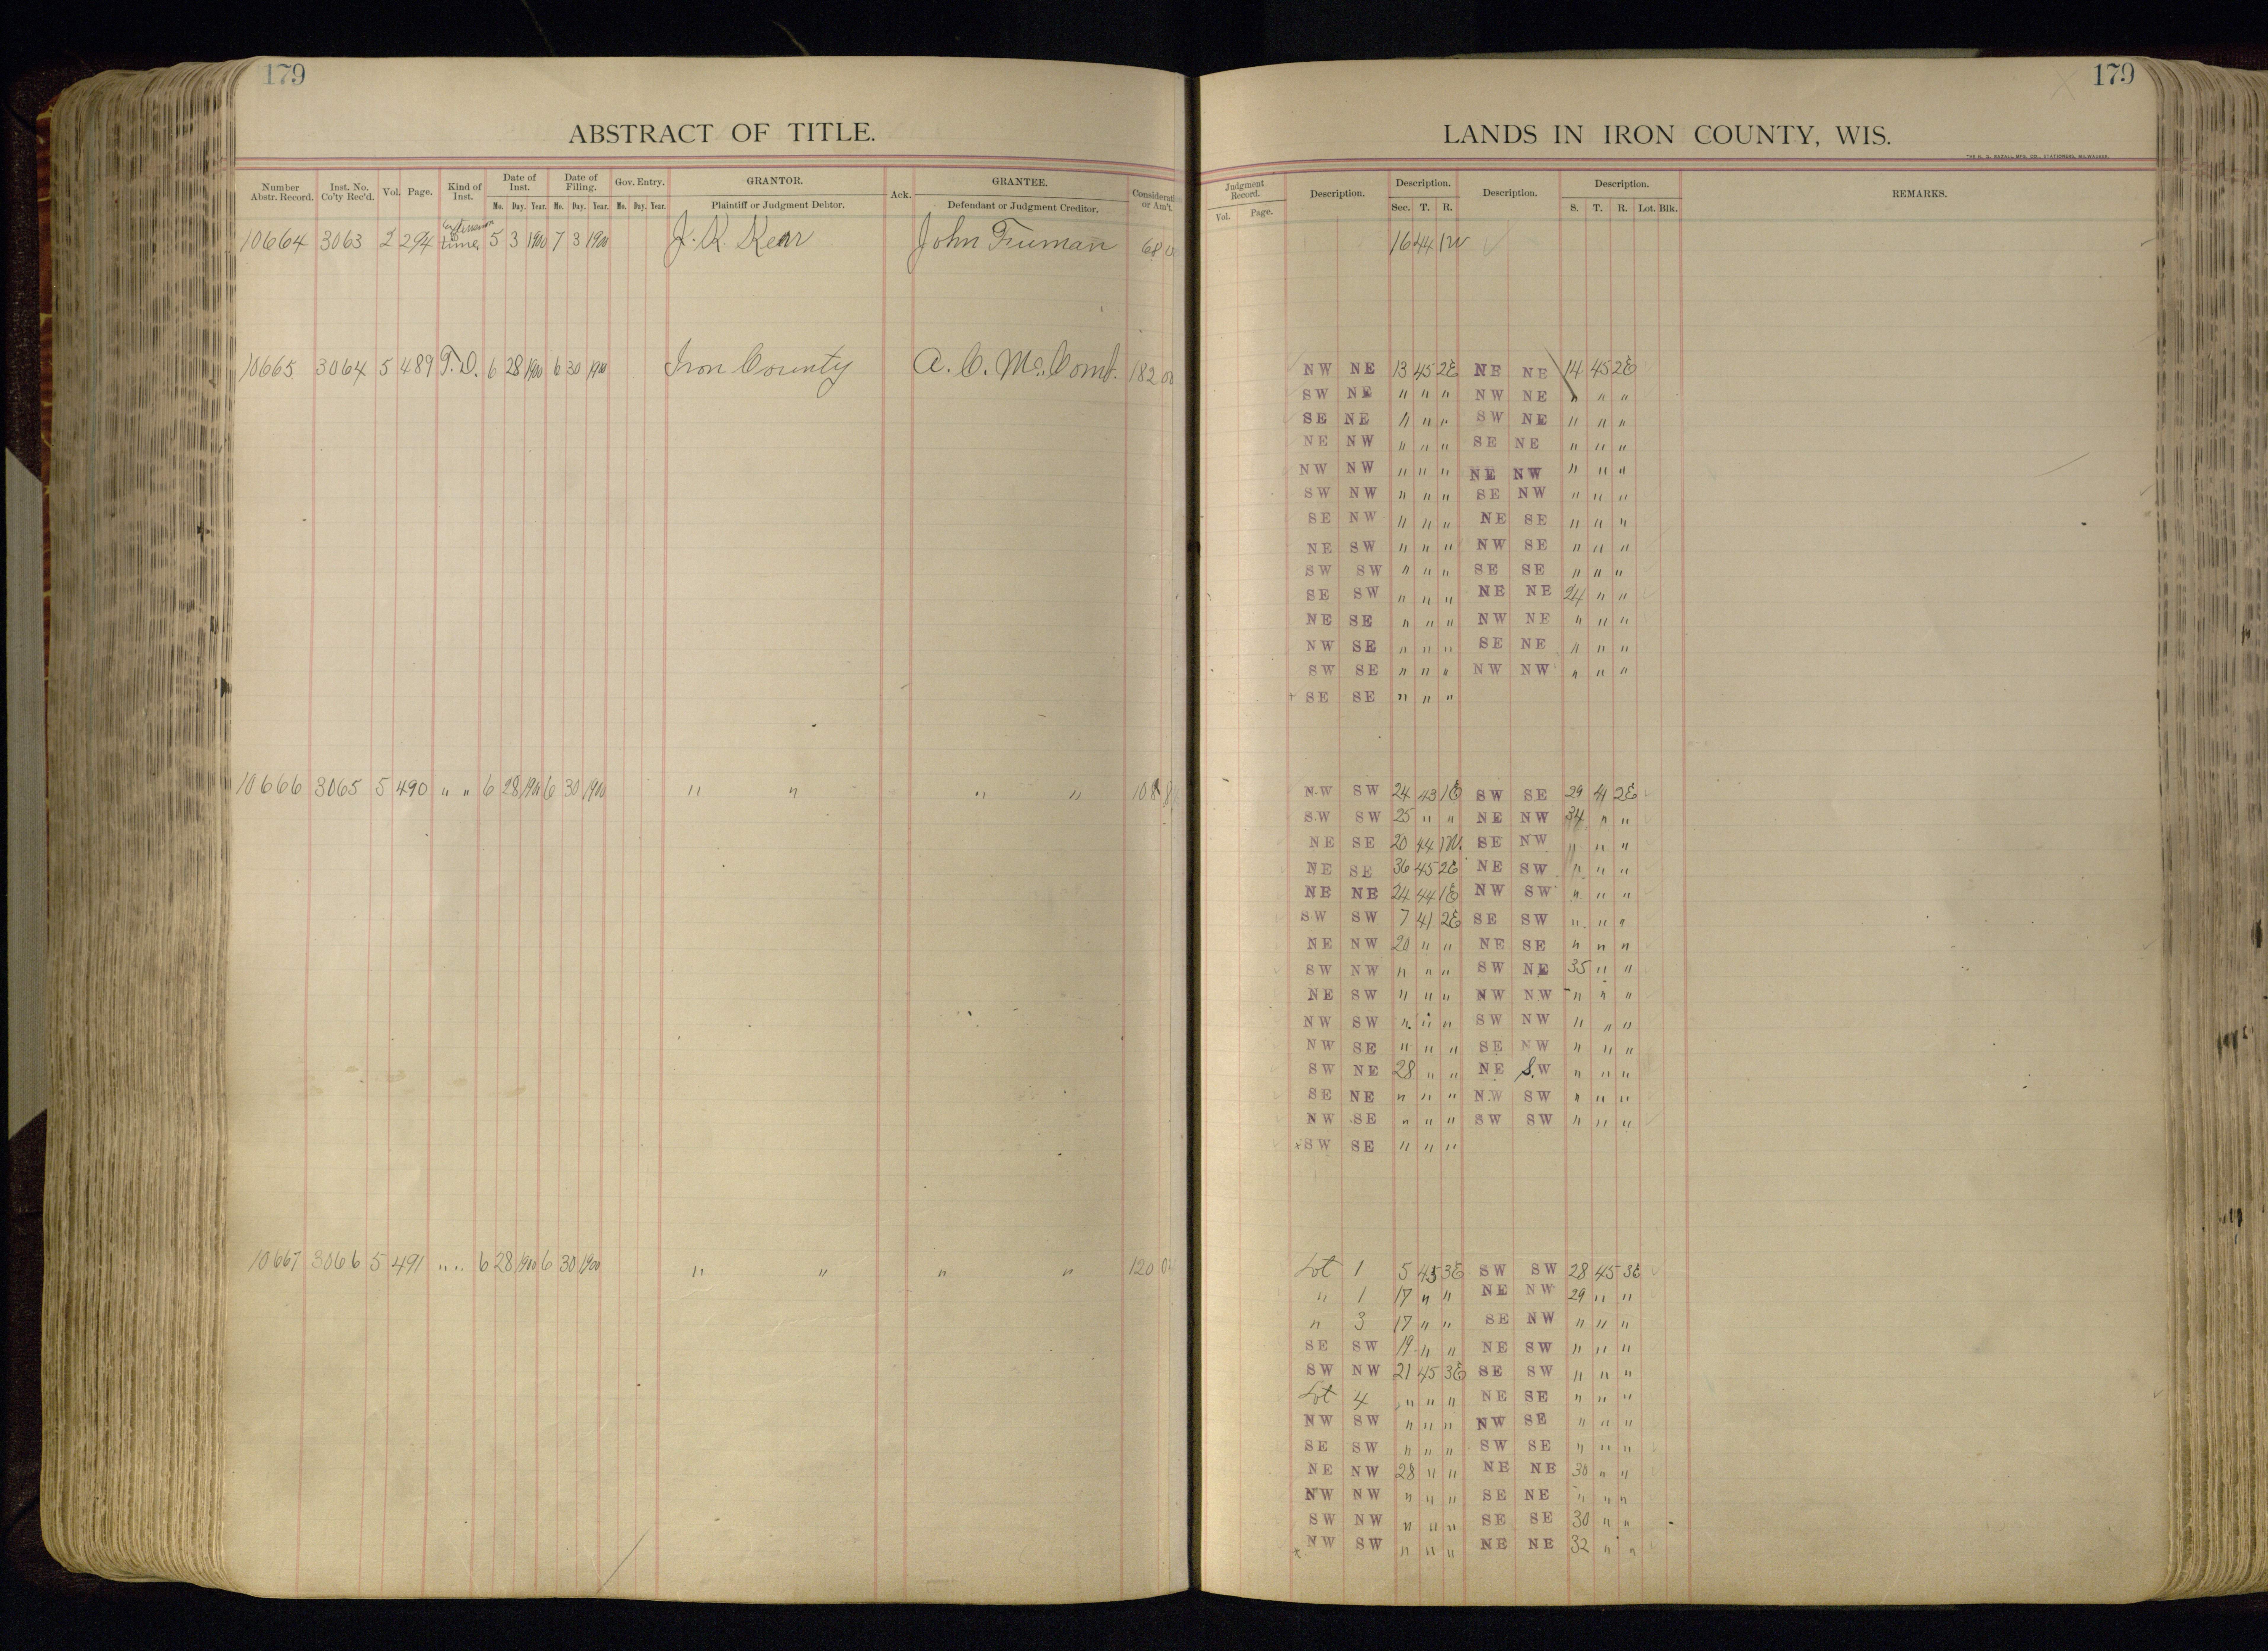 179
ABSTRACT OF TITLE.
Number Abstr. Record. Inst. No. Co'ty Rec'd. Vol. Page. Kind of Inst. Date of Inst. Mo. Day. Year. Date of Filing. Mo. Day. Year. Gov. Entry. Mo. Day. Year. GRANTOR. Plaintiff or Judgment Debtor. Ack. GRANTEE. Defendant or Judgment Creditor. Considerati or Am't.
10664 3063 2 294 Extension time 5 3 1900 7 3 1900 J. K. Kear John Truman 68
10665 3064 5 489 T.D. 6 28 1900 6 30 1900 Iron County A. C. McComb. 182 00
10666 3065 5 490 " " 6 28 1900 6 30 1900 " " " " 108
10667 3066 5 491 " " 6 28 1900 6 30 1900 " " " " 120
179
LANDS IN IRON COUNTY, WIS.
THE H. G. RAZALL MFG. CO., STATIONERS, MILWAUKEE.
Judgment Record. Vol. Page. Description. Description. Sec. T. R. Description. Description. S. T. R. Lot. Blk. REMARKS.
16 44 1W
NW NE 13 45 2E NE NE 14 45 2E
SW NE " " " NW NE " " "
SE NE " " " SW NE " " "
NE NW " " " SE NE " " "
NW NW " " " NE NW " " "
SW NW " " " SE NW " " "
SE NW " " " NE SE " " "
NE SW " " " NW SE " " "
SW SW " " " SE SE " " "
SE SW " " " NE NE 24 " "
NE SE " " " NW NE " " "
NW SE " " " SE NE " " "
SW SE " " " NW NW " " "
+ SE SE " " "
NW SW 24 43 1E SW SE 29 41 2E
SW SW 25 " " NE NW 34 " "
NE SE 20 44 1W. SE NW " " "
NE SE 36 45 2E NE SW " " "
NE NE 24 44 1E NW SW " " "
SW SW 7 41 2E SE SW " " "
NE NW 20 " " NE SE " " "
SW NW " " " SW NE 35 " "
NE SW " " " NW NW " " "
NW SW " " " SW NW " " "
NW SE " " " SE NW " " "
SW NE 28 " " NE SW " " "
SE NE " " " NW SW " " "
NW SE " " " SW SW " " "
+ SW SE " " "
Lot 1 5 45 3E SW SW 28 45 3E
" 1 17 " " NE NW 29 " "
" 3 17 " " SE NW " " "
SE SW 19 " " NE SW " " "
SW NW 21 45 3E SE SW " " "
Lot 4 " " " NE SE " " "
NW SW " " " NW SE " " "
SE SW " " " SW SE " " "
NE NW 28 " " NE NE 30 " "
NW NW " " " SE NE " " "
SW NW " " " SE SE 30 " "
+ NW SW " " " NE NE 32 " "